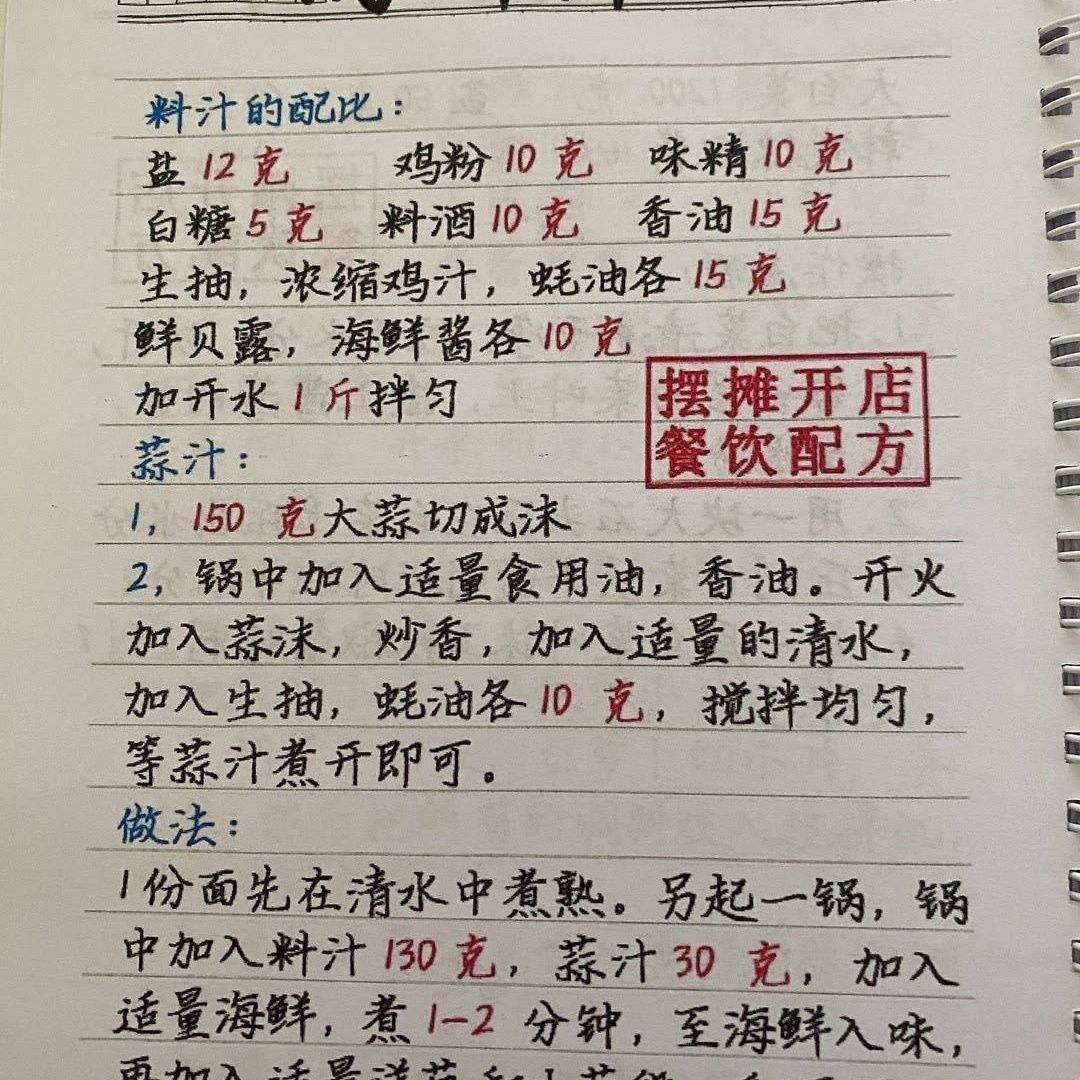 料汁的配比：
盐 12 克 鸡粉 10 克 味精 10 克
白糖 5 克 料酒 10 克 香油 15 克
生抽，浓缩鸡汁，蚝油各 15 克
鲜贝露，海鲜酱各 10 克
加开水 1 斤拌匀
摆摊开店
餐饮配方
蒜汁：
1，150 克大蒜切成沫
2，锅中加入适量食用油，香油。开火
加入蒜沫，炒香，加入适量的清水，
加入生抽，蚝油各 10 克，搅拌均匀，
等蒜汁煮开即可。
做法：
1份面先在清水中煮熟。另起一锅，锅
中加入料汁 130 克，蒜汁 30 克，加入
适量海鲜，煮 1-2 分钟，至海鲜入味，
再加入适量洋葱和